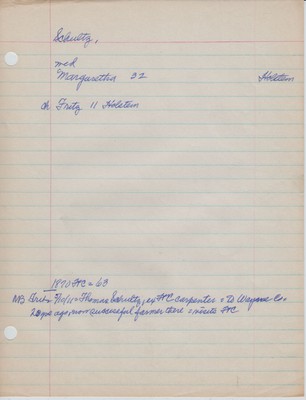 Schultz,
med
Margaretha 32 Holstein
ch Fritz 11 Holstein
1870 FC = 63
NB 7/10/11 = Thomas Schultz, ex FC carpenter = to Wayne Co.
28 yrs ago, now successful farmer there = visits FC